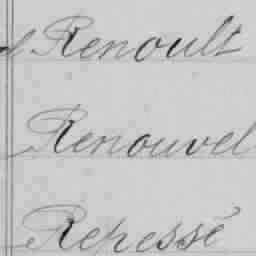 Renoult
Renouvel
Repessé